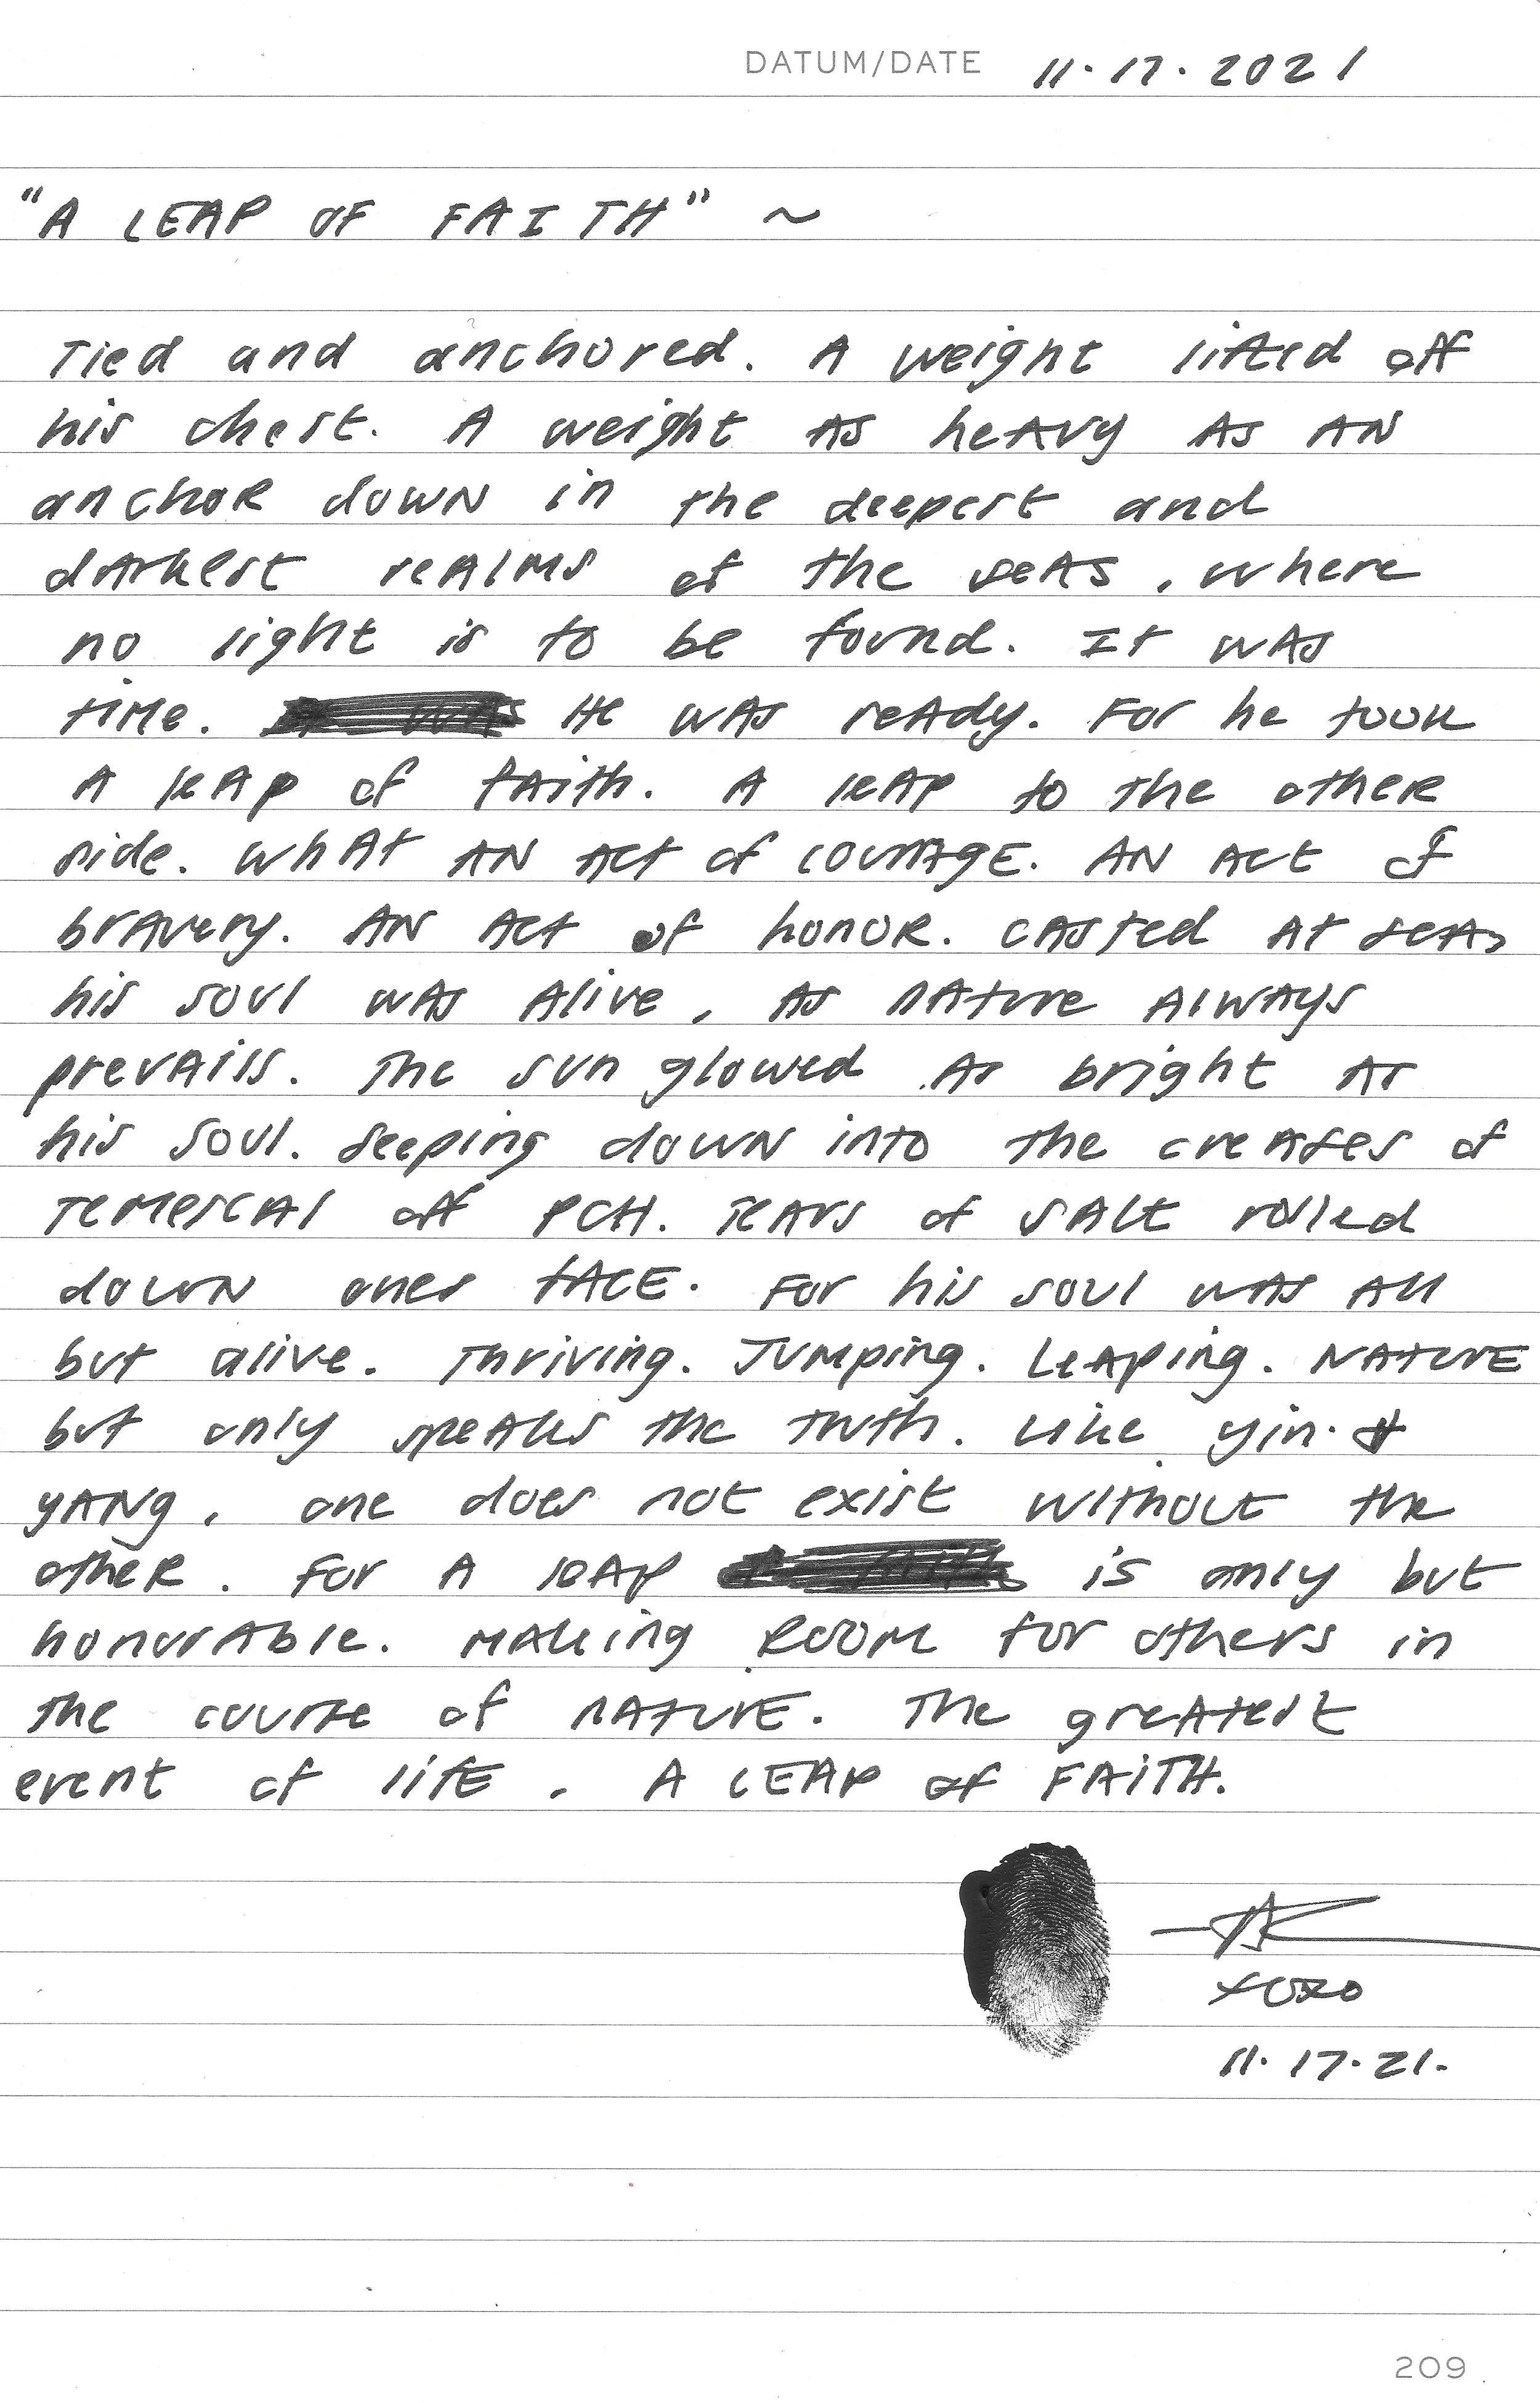 DATUM/DATE 11.17.2021
"A LEAP OF FAITH" ~
Tied and anchored. A weight lifted off
his chest. A weight AS heAvy AS AN
anchoR dowN in the deepest and
dArkest reAlMs of the seAs, where
no light is to be found. It wAs
tiMe. He wAs reAdy. For he took
A leAp of fAith. A leAp to the otheR
side. WhAt AN Act of courAgE. AN Act of
brAvery. AN Act of honoR. CAsted At seA,
his soul wAs Alive, As nAture AlwAys
prevAils. The sun glowed As bright As
his soul. Seeping dowN into the creAses of
TeMescAl off PCH. TeArs of sAlt rolled
dowN ones fACE. For his soul wAs All
but alive. Thriving. JuMping. LeAping. NAturE
but only speAks the truth. Like yin. &
yANg, one does not exist without the
otheR. For A leAp is only but
honorAble. MAking RooM for others in
the course of nAturE. The greAtest
event of lifE. A LEAP of FAiTH.
XOXO
11.17.21.
209